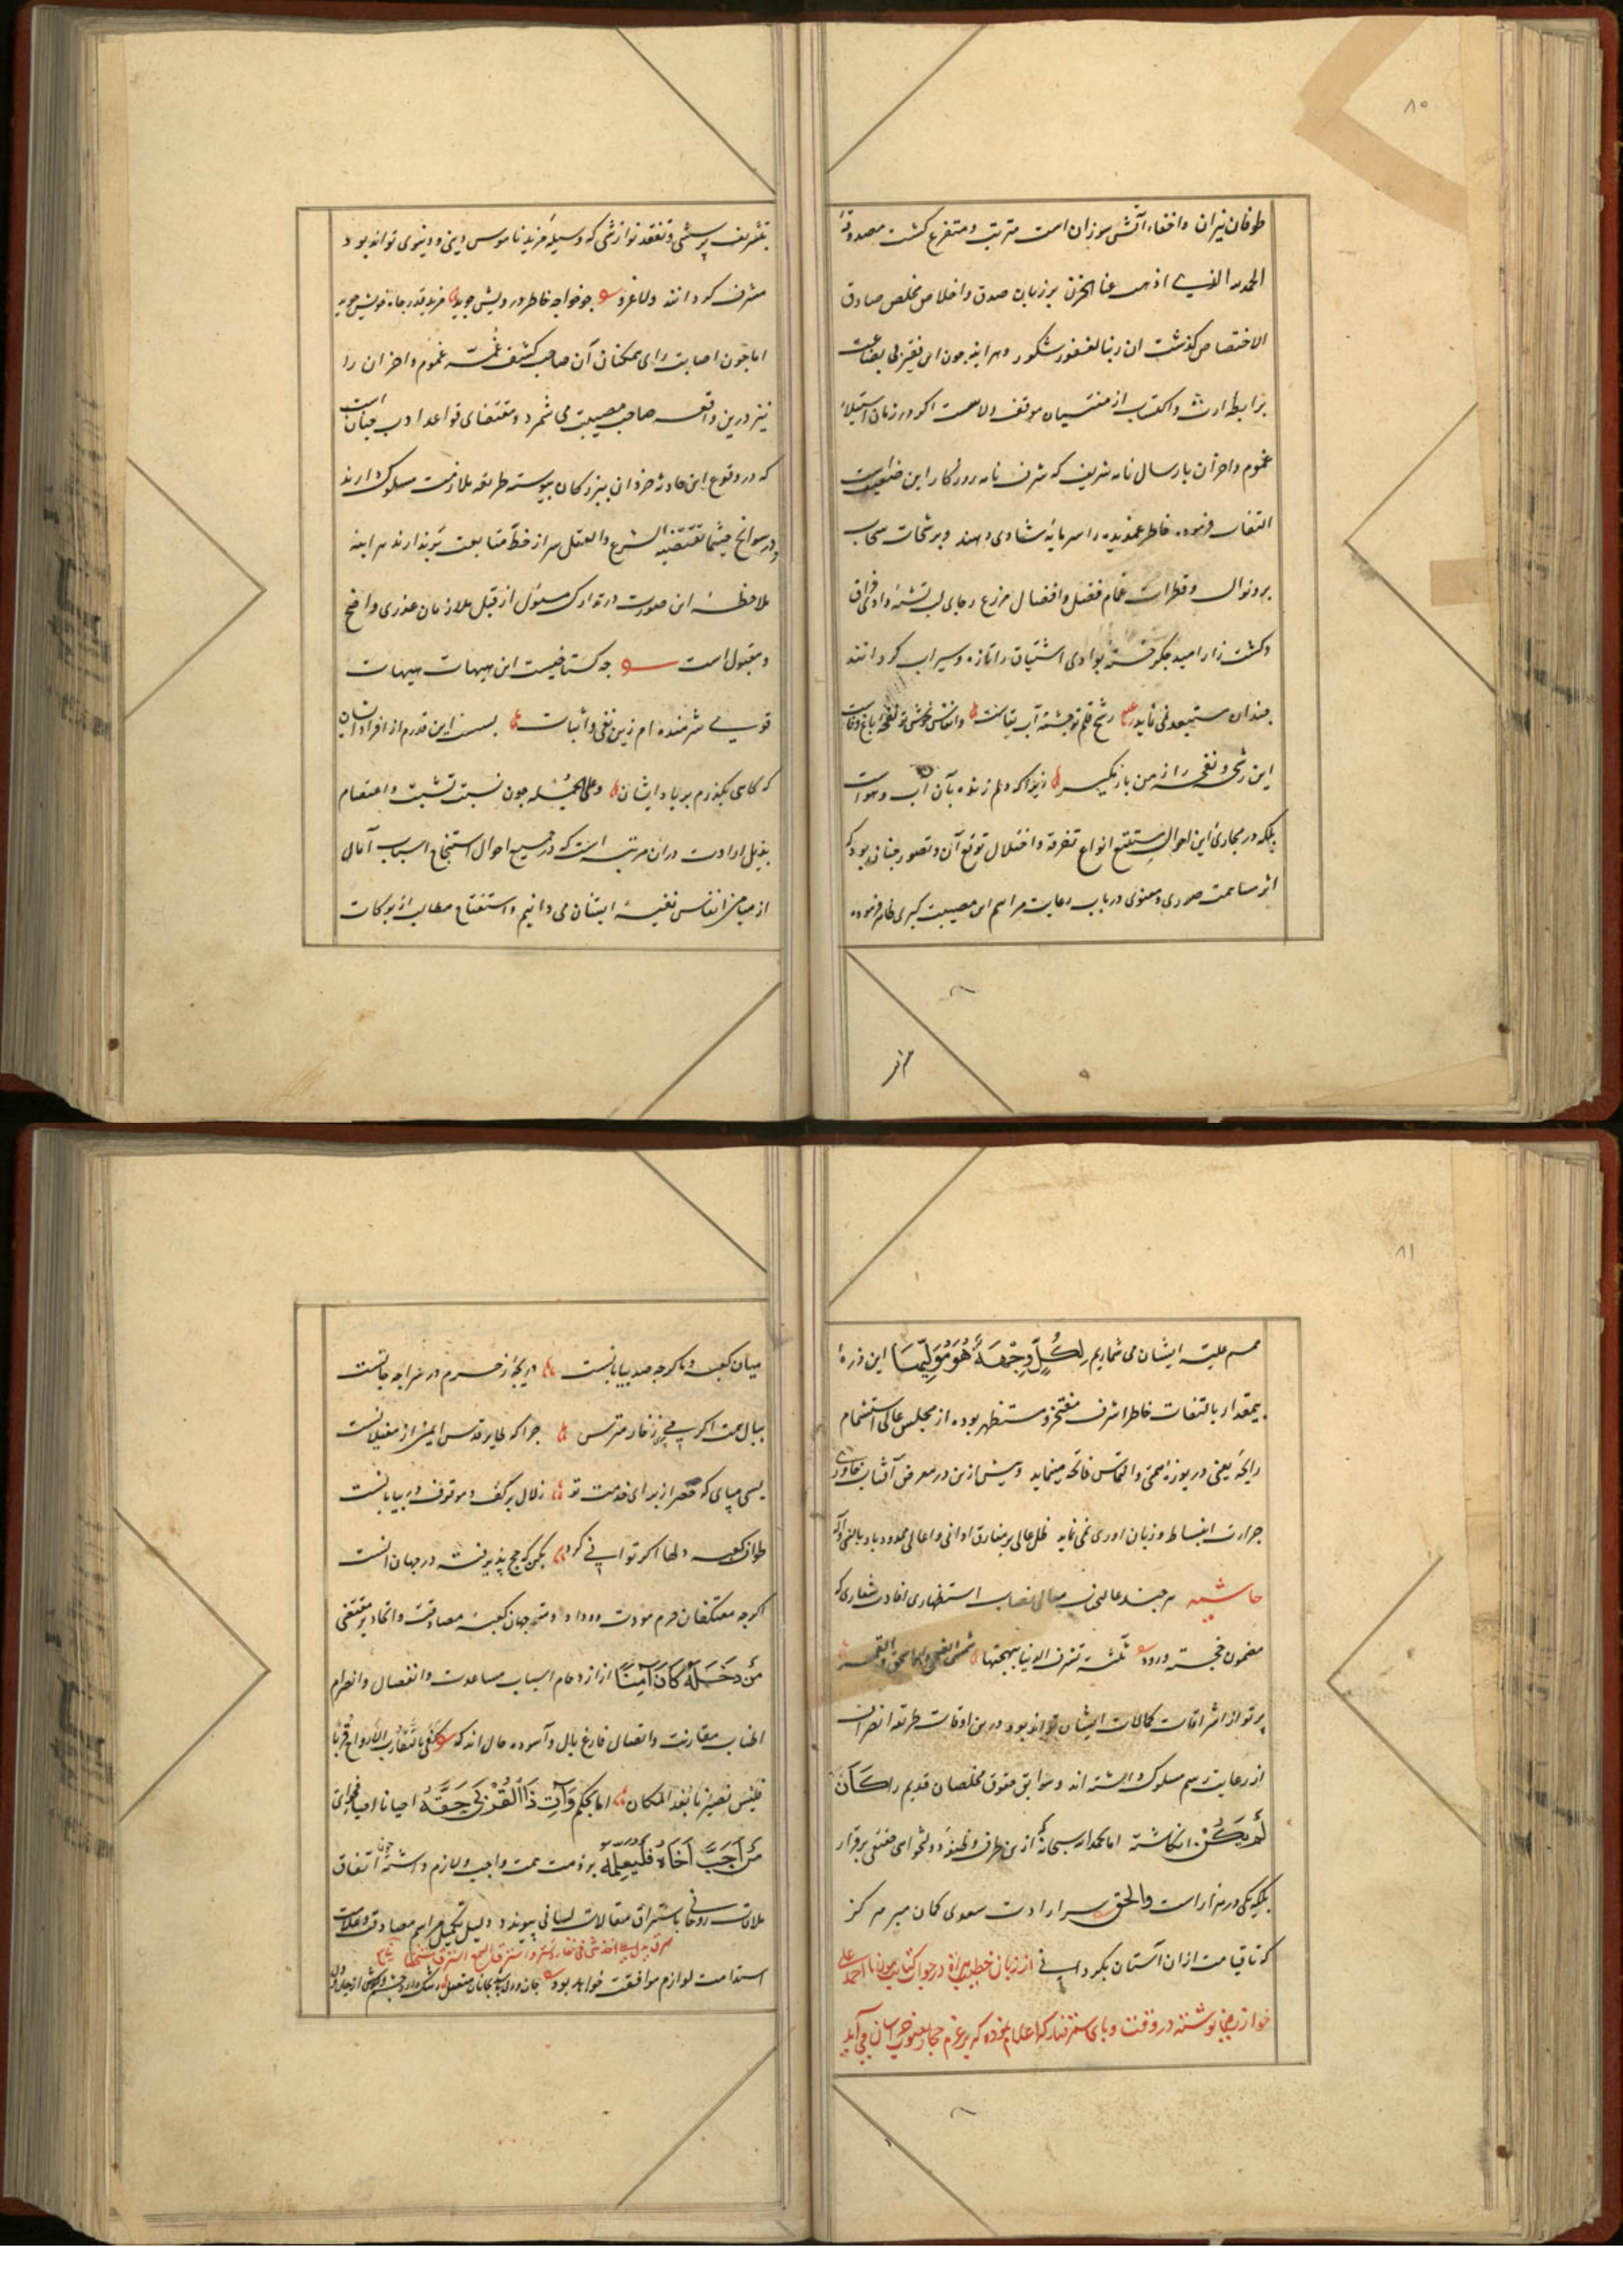 ۸۰
طوفان نیران واخفاء آتش سوزان است مترتب ومتفرع کشت مصدوقهٔ
الحمد لله الذی اذهب عنا الحزن بر زبان صدق واخلاص مخلص صادق
الاختصاص کذشت ان ربنا لغفور شکور وهرآینه چون این فقیر بی بضاعت
برابطه ارث واکتساب از منتسبان موقف ولاست اکر در زمان استیلاء
غموم واحزان بارسال نامه شریف که شرف نامه روزکار این ضعیفست
التفات فرموده خاطر غمدیده را سرمایه شادی دهند وبرشحات سحاب
بر ونوال وقطرات غمام فضل وافضال مزرع رجای لب تشنه وادی فراق
وکشت زار امید جکر خسته بوادی اشتیاق را تازه وسیراب کردانند
چندان مستبعد نمی نماید رشح قلم تو چشمه آب بقاست وانفاس خوش تو نفحه باغ وفاست
این رشحه ونفحه را ز من باز مکیر زیرا که دلم زنده بآن آب وهواست
بلکه در مجاری این احوال مستتبع انواع تفرقه واختلال توقع آن وتصور چنان بود که
اثر مساهمت صوری ومعنوی در باب رعایت مراسم این مصیبت کبری ظاهر فرموده
بتشریف پرسشی وتفقد نوازشی که وسیله مزید ناموس دینی ودنیوی تواند بود
مشرف کردانند ولا غرو چو خواجه خاطر درویش جوید مزید قدر جاه خویش جوید
اما چون اصابت رای ممکنان آن صاحب کشف غمه غموم واحزان را
نیز درین واقعه صاحب مصیبت می شمرد ومقتضای قواعد ادب چنان است
که در وقوع این حادثه خردان بزرکان پیوسته طریقه ملازمت مسلوک دارند
ودر سوانح حیثما تقتضیه الشرع والعقل سر از خط متابعت بر ندارند هراینه
ملاحظه این صورت در تدارک مسئول از قبل ملازمان عذری واضح
ومقبول است چه کستاخیست این هیهات هیهات
قوی شرمنده ام زین نفی واثبات بسست این قدرم از افراد ایشان
که کاهی بکذرم بر یاد ایشان وعلی الجمله چون نسبت تشبث واعتصام
بذیل ارادت در ان مرتبه است که در جمیع احوال استنجاح اسباب آمال
از میامن انفاس نفیسه ایشان می دانیم واستفتاح مطالب از برکات
۸۱
همم علیه ایشان می شماریم لِكُلٍّ وِجْهَةٌ هُوَ مُوَلِّيهَا این ذره
بیمقدار بالتفات خاطر اشرف مفتخر ومستظهر بوده از مجلس عالی استشمام
رایحه یعنی دریوزه همتی والتماس فاتحه مینماید وبیش ازین در معرض آفتاب خاوری
جرات انبساط وزبان اوری نمی نماید ظل عالی بر مفارق ادانی واعالی ممدود باد بالنبی وآله
حاشیه هر چند عالی معالی نصاب استظهاری افادت شعاری که
مضمون خجسته ورود ثلثة تشرق الدنیا ببهجتها شمس الضحی وابو اسحق والقمر
پرتو از اشراقات کمالات ایشان تواند بود درین اوقات طریقه انحراف
از رعایت رسم مسلوک داشته اند وسوابق حقوق مخلصان قدیم را كَأَن
لَمْ يَكُنْ انکاشته اما بحمد الله سبحانه که ازین طرف وظیفه دولتخواهی برقرار
بلکه یکی در هزار است والحق سر ارادت سعدی کمان مبر هرکز
که تا قیامت ازان آستان بکرداند از زبان خطیب در جواب کتاب مولانا احمد علی
خوارزمی نوشته در وقت وبای که اعلام نموده که بر عزم حجاز بصوب خراسان می آید
میان کعبه وما کرچه صد بیابانست دریچه ز حرم در سراچه جانست
ببال همت اکر می پری ز خار مترس چرا که طایر قدس ایمن از مغیلانست
بسی مپای که خضر از برای خدمت تو زلال بر کف وموقوف در بیابانست
طواف کعبه دلها اکر توانی کرد بکن که حج پذیرفته در جهان آنست
اکرچه معتکفان حرم مودت ووداد ومتوجهان کعبه مصادقت واتحاد بر مقتضی
مَنْ دَخَلَهُ كَانَ آمِنًا از ازدحام اسباب مساعدت وانفصال وانصرام
اطناب مقارنت واتصال فارغ بال وآسوده حال اند که کفی بتقارب الارواح قربا
فلیس بضیرنا بعد المکان اما بحکم وَآتِ ذَا الْقُرْبَى حَقَّهُ احیانا احیاء فحوای
مَنْ أَحَبَّ أَخَاهُ فَلْيُعْلِمْهُ بر ذمت همت واجب ولازم داشته چون اتفاق
ملاقات روحانی باشراق مقالات لسانی پیوندد ودلیل تکمیل مراسم مصادقت وعلامت
استدامت لوازم موافقت خواهد بود